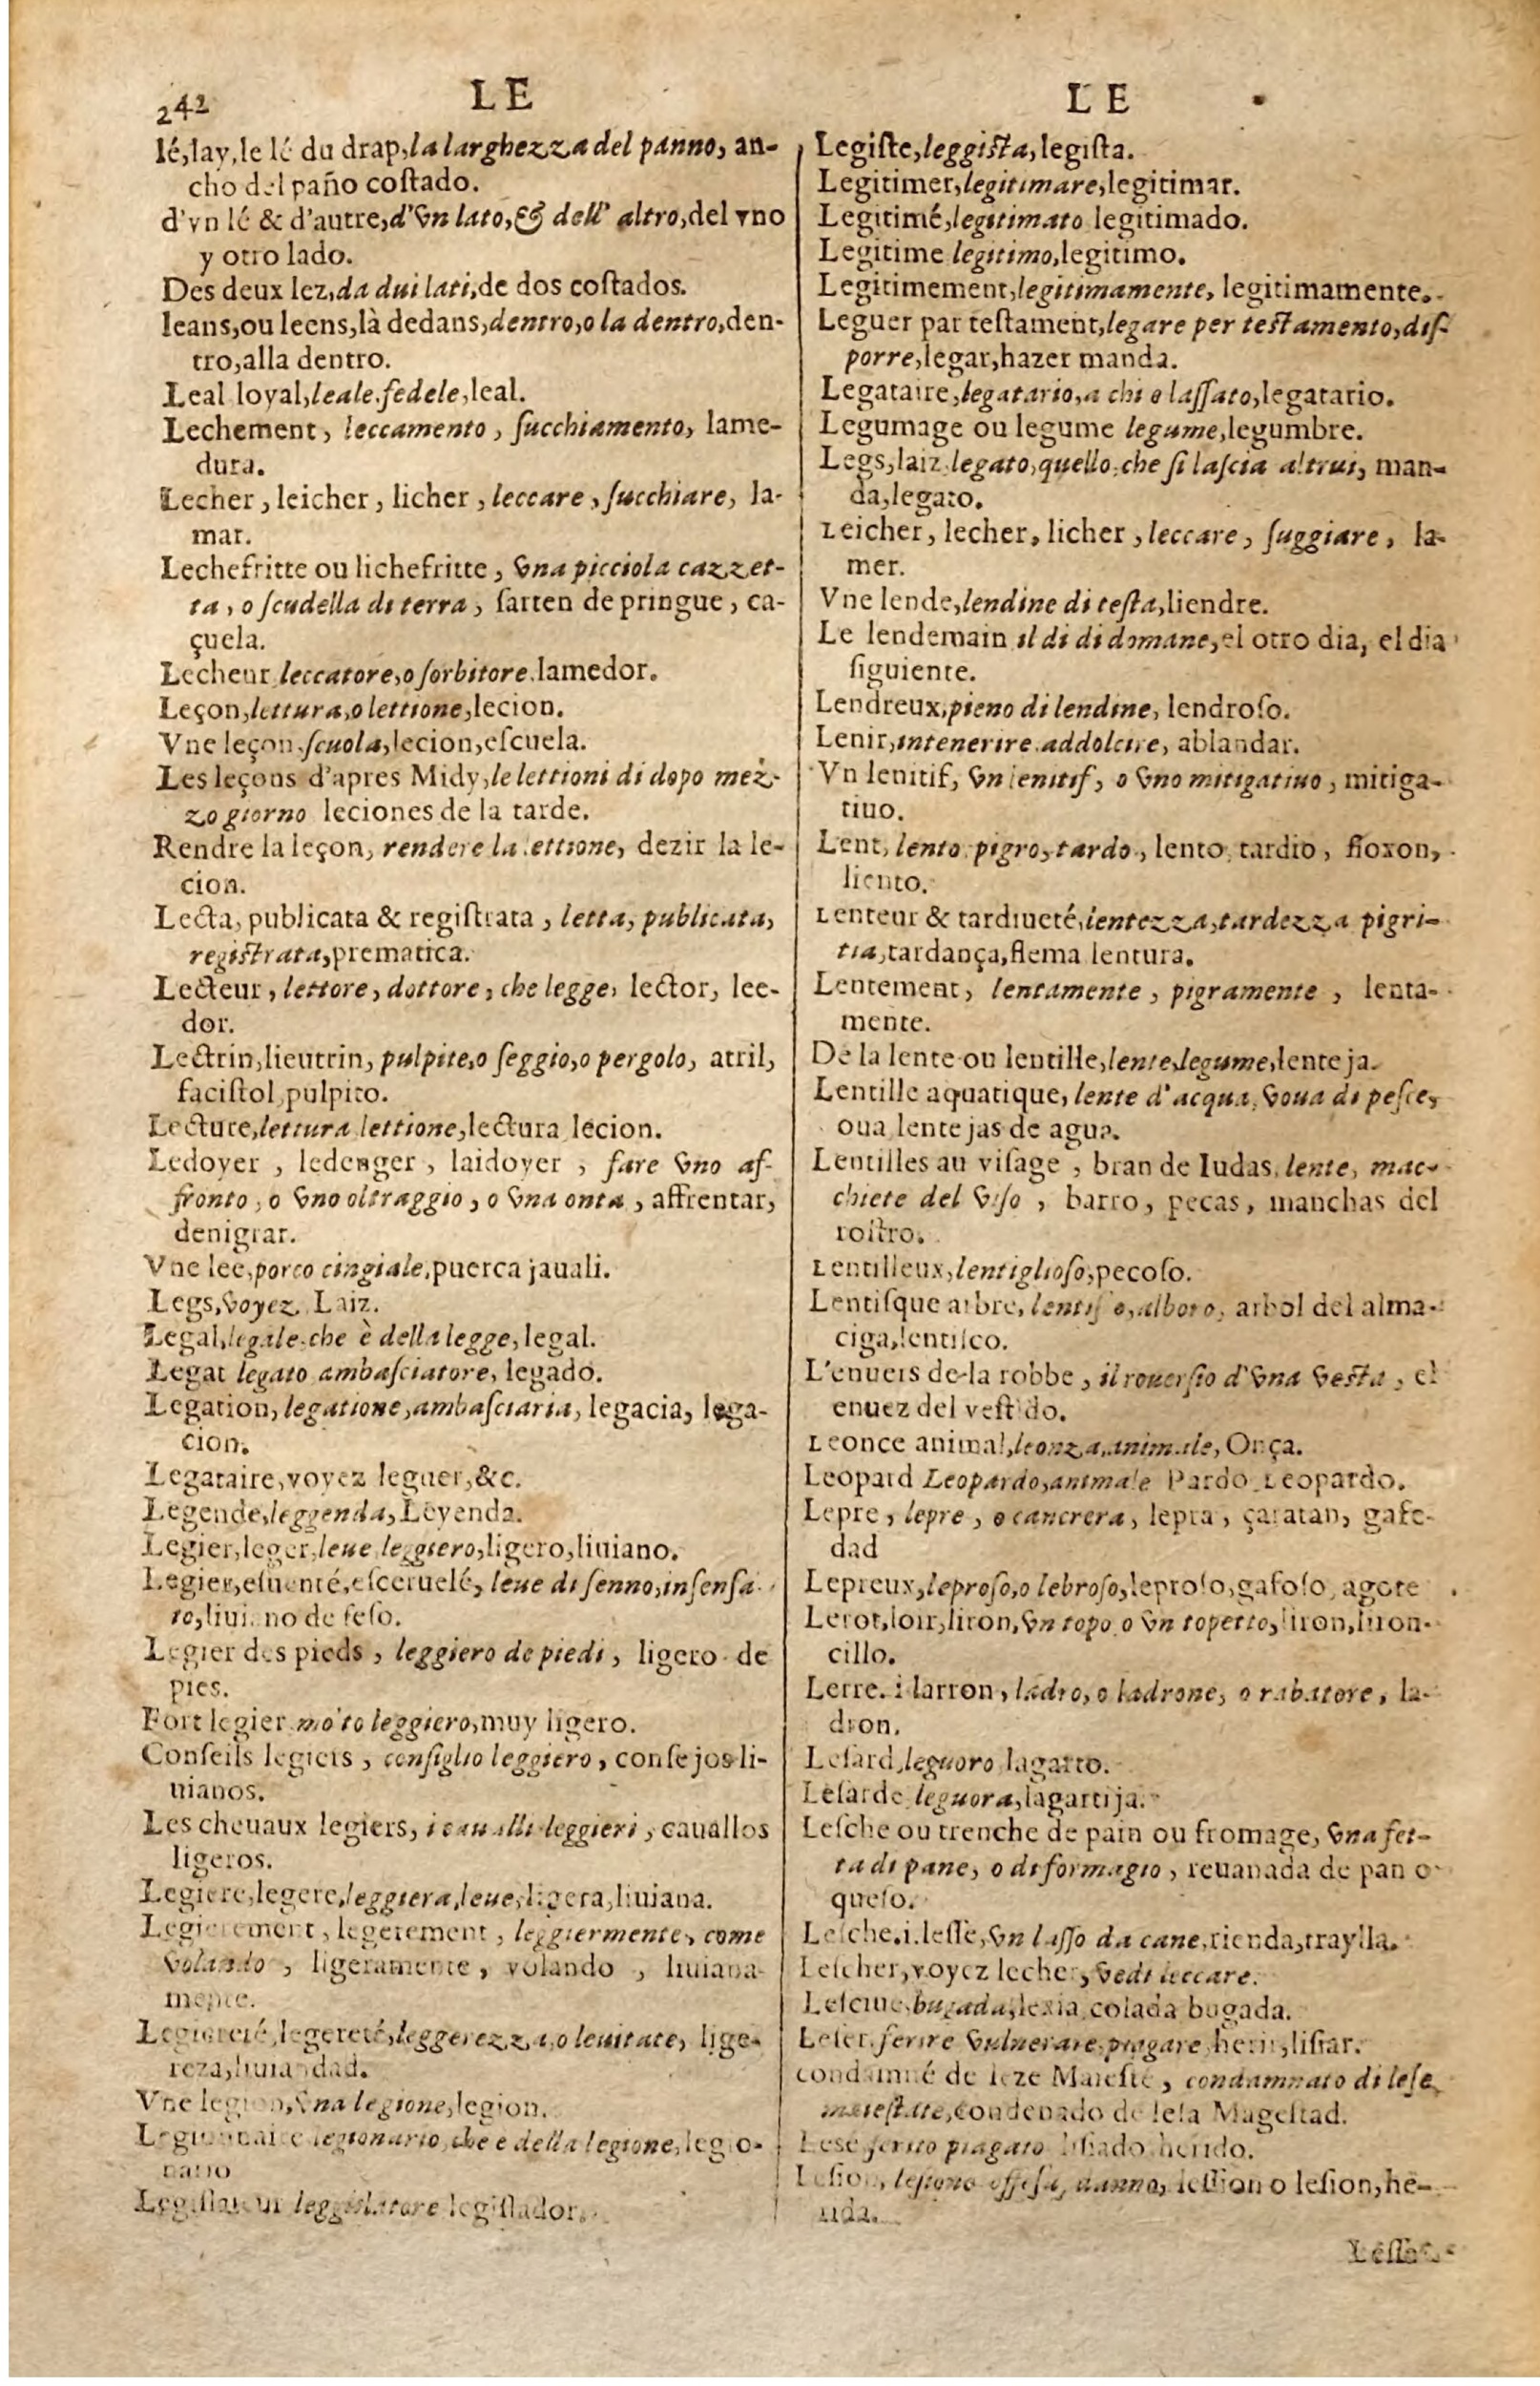 242
LE
lé, lay, le lé du drap, la larghezza del panno, an-
cho del paño coſtado.
d'vn lé & d'autre, d'vn lato, & dell' altro, del vno
y otro lado.
Des deux lez, da dui lati, de dos coſtados.
leans, ou leens, là dedans, dentro, o la dentro, den-
tro, alla dentro.
Leal loyal, leale, fedele, leal.
Lechement, leccamento, ſucchiamento, lame-
dura.
Lecher, leicher, licher, leccare, ſucchiare, la-
mar.
Lechefritte ou lichefritte, vna picciola cazzet-
ta, o ſcudella di terra, ſarten de pringue, ca-
çuela.
Lecheur, leccatore, o ſorbitore, lamedor.
Leçon, lettura, o lettione, lecion.
Vne leçon, ſcuola, lecion, eſcuela.
Les leçons d'apres Midy, le lettioni di dopo mez-
zo giorno leciones de la tarde.
Rendre la leçon, rendere la lettione, dezir la le-
cion.
Lecta, publicata & regiſtrata, letta, publicata,
regiſtrata, prematica.
Lecteur, lettore, dottore, che legge, lector, lee-
dor.
Lectrin, lieutrin, pulpite, o ſeggio, o pergolo, atril,
faciſtol, pulpito.
Lecture, lettura lettione, lectura lecion.
Ledoyer, ledenger, laidoyer, fare vno af-
fronto, o vno oltraggio, o vna onta, affrentar,
denigrar.
Vne lee, porco cingiale, puerca jauali.
Legs, voyez Laiz.
Legal, legale, che è della legge, legal.
Legat legato ambaſciatore, legado.
Legation, legatione, ambaſciaria, legacia, lega-
cion.
Legataire, voyez leguer, &c.
Legende, leggenda, Leyenda.
Legier, leger, leue leggiero, ligero, liuiano.
Legier, eſuenté, eſceruelé, leue di ſenno, inſenſa-
to, liuiano de ſeſo.
Legier des pieds, leggiero de piedi, ligero de
pies.
Fort legier molto leggiero, muy ligero.
Conſeils legiers, conſiglio leggiero, conſejos li-
uianos.
Les cheuaux legiers, i caualli leggieri, cauallos
ligeros.
Legiere, legere, leggiera, leue, ligera, liuiana.
Legierement, legerement, leggiermente, come
volando, ligeramente, volando, liuiana-
mente.
Legiereté, legereté, leggerezza, o leuitate, lige-
reza, liuiandad.
Vne legion, vna legione, legion.
Legionnaire legionario, che e della legione, legio-
nario
Legiſlateur leggislatore legiſlador.
LE
Legiſte, leggiſta, legiſta.
Legitimer, legitimare, legitimar.
Legitimé, legitimato legitimado.
Legitime legitimo, legitimo.
Legitimement, legitimamente, legitimamente.
Leguer par teſtament, legare per teſtamento, diſ-
porre, legar, hazer manda.
Legataire, legatario, a chi e laſſato, legatario.
Legumage ou legume legume, legumbre.
Legs, laiz legato, quello, che ſi laſcia altrui, man-
da, legato.
Leicher, lecher, licher, leccare, ſuggiare, la-
mer.
Vne lende, lendine di teſta, liendre.
Le lendemain il di di domane, el otro dia, el dia
ſiguiente.
Lendreux, pieno di lendine, lendroſo.
Lenir, intenerire, addolcire, ablandar.
Vn lenitif, vn lenitif, o vno mitigatiuo, mitiga-
tiuo.
Lent, lento pigro, tardo, lento, tardio, floxon,
liento.
Lenteur & tardiueté, lentezza, tardezza pigri-
tia, tardança, flema lentura.
Lentement, lentamente, pigramente, lenta-
mente.
De la lente ou lentille, lente, legume, lenteja.
Lentille aquatique, lente d'acqua, voua di peſce,
oua lentejas de agua.
Lentilles au viſage, bran de Iudas, lente, mac-
chiete del viſo, barro, pecas, manchas del
roſtro.
Lentilleux, lentiglioſo, pecoſo.
Lentiſque arbre, lentiſ o, alboro, arbol del alma-
ciga, lentiſco.
L'enuers de la robbe, il rouerſio d'vna veſta, el
enuez del veſtido.
Leonce animal, leonza, animale, Onça.
Leopard Leopardo, animale Pardo Leopardo.
Lepre, lepre, o cancrera, lepra, çaratan, gafe-
dad
Lepreux, leproſo, o lebroſo, leproſo, gafoſo, agote
Lerot, loir, liron, vn topo o vn topetto, liron, liron-
cillo.
Lerre. i larron, ladro, o ladrone, o rabatore, la-
dron.
Leſard, leguoro lagarto.
Leſarde leguora, lagartija.
Leſche ou trenche de pain ou fromage, vna fet-
ta di pane, o di formagio, reuanada de pan o
queſo.
Leſche. i. leſſe, vn laſſo da cane, rienda, traylla.
Leſcher, voyez lecher, vedi leccare.
Leſciue, bugada, lexia colada bugada.
Leſer, ferire vulnerare, piagare, herir, liſiar.
condamné de leze Maieſté, condamnato di leſe
maieſtate, condenado de leſa Mageſtad.
Lesé ferito piagato liſiado herido.
Leſion, leſione offeſa, danno, leſſion o leſion, he-
rida.